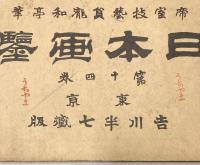 帝室技藝員瀧和亭筆
日本画鑒
第十四巻
東京
吉川半七蔵版